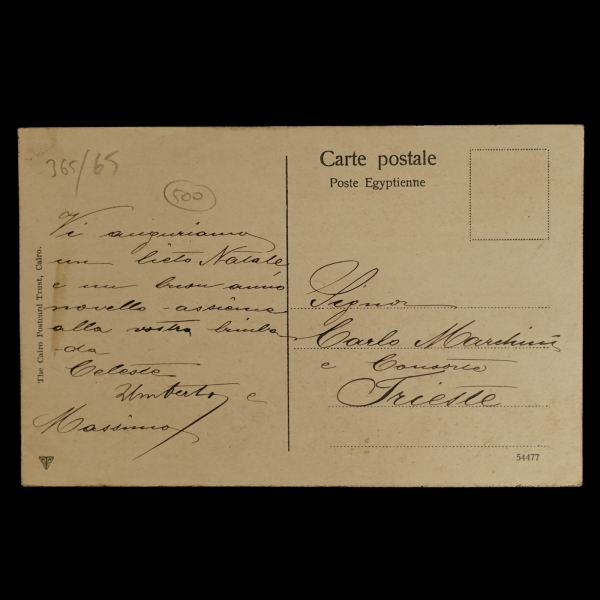 365/65
500
Vi auguriamo
un lieto Natale
e un buon anno
novello - assieme
alla vostra bimba
da
Celeste
Umberto e
Massimo
The Cairo Postcard Trust, Cairo.
Carte postale
Poste Egyptienne
Signor
Carlo Marchini
e Consorte
Trieste
54477